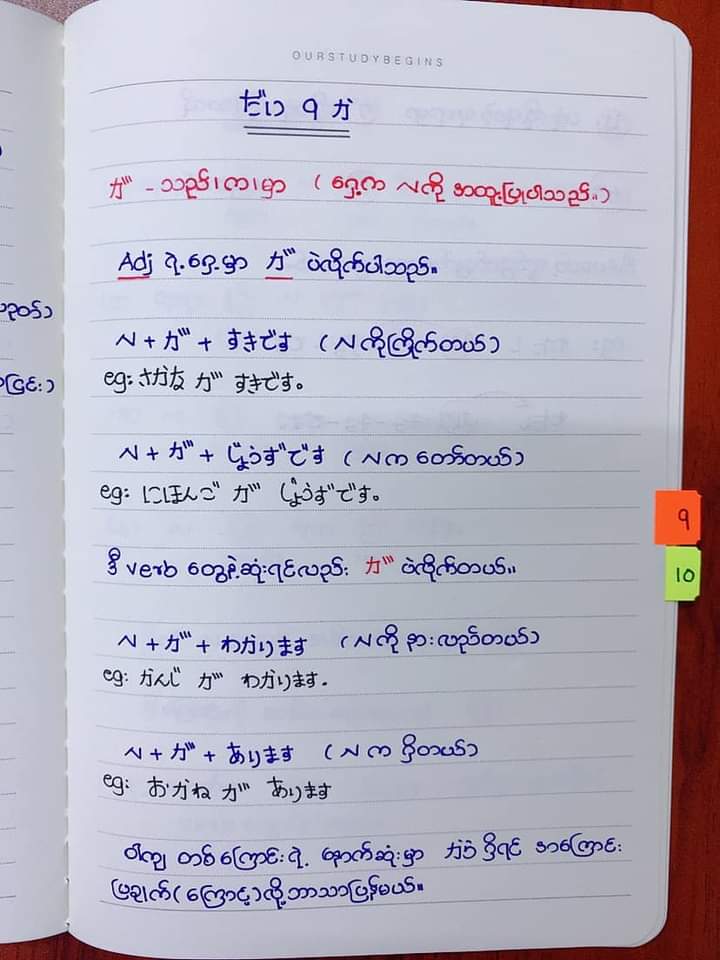 OURSTUDYBEGINS
だい 9 か
が - သည်၊က၊မှာ ( ရှေ့က N ကို အထူးပြုပါသည်။ )
Adj ရဲ့ ရှေ့မှာ が ပဲလိုက်ပါသည်။
N + が + すきです ( N ကိုကြိုက်တယ် )
eg: さかな が すきです。
N + が + じょうずです ( N က တော်တယ် )
eg: にほんご が じょうずです。
ဒီ verb တွေနဲ့ဆုံးရင်လည်း が ပဲလိုက်တယ်။
N + が + わかります ( N ကို နားလည်တယ် )
eg: かんじ が わかります.
N + が + あります ( N က ရှိတယ် )
eg: おかね が あります
ဝါကျ တစ်ကြောင်းရဲ့ နောက်ဆုံးမှာ から ရှိရင် အကြောင်း
ပြချက် ( ကြောင့် ) လို့ဘာသာပြန်မယ်။
ညွတ် )
ခြင်း )
9
10